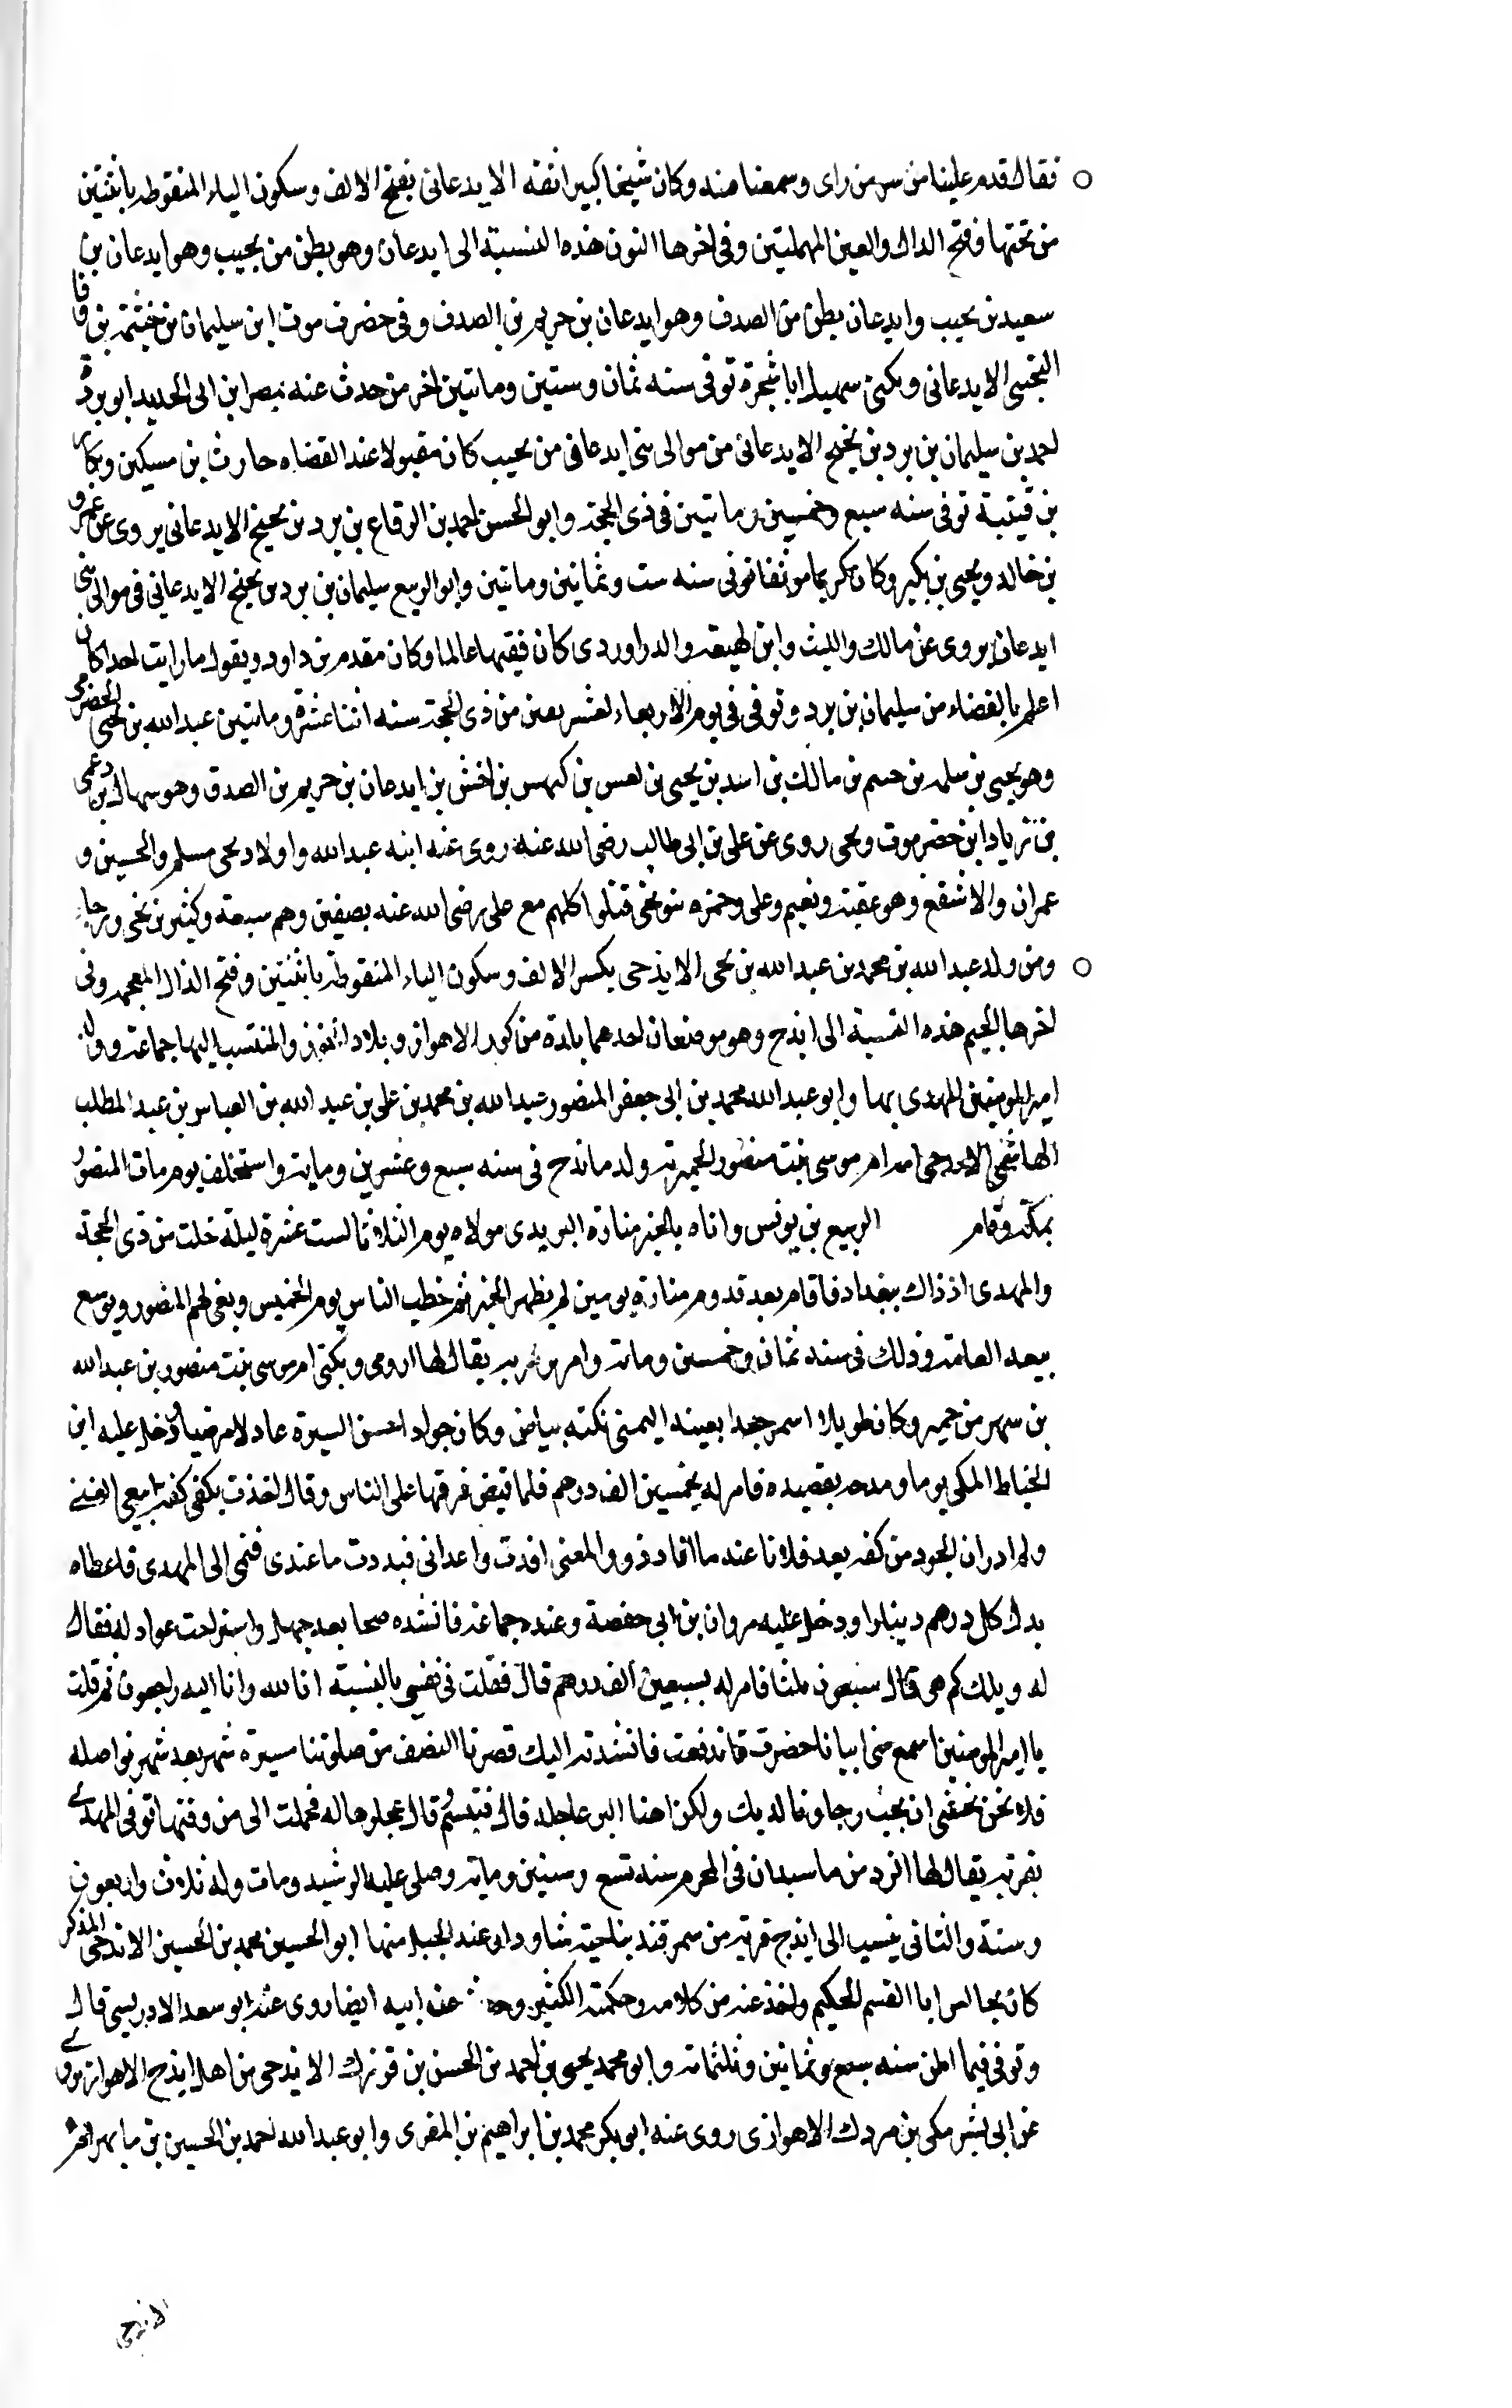 فقال قدم علينا من سر من راى وسمعنا منه وكان شيخا كبيرا ثقه الايدعانى بفتح الالف وسكون الياء المنقوطه باثنتين
من تحتها وفتح الدال والعين المهملتين وفى اخرها النون هذه النسبة الى ايدعان وهو بطن من تجيب وهو ايدعان بن
سعيد بن تجيب وايدعان بطن من الصدف وهو ايدعان بن حريم بن الصدف وفى حضرموت ابن سليمان بن خيثمة بن
التجيبى الايدعانى ويكنى سهيل ابا شجرة توفى سنه ثمان وستين وماتين اخر من حدث عنه بمصر ابن ابى الحديد ابو برد
احمد بن سليمان بن برد بن نجيح الايدعانى من موالى بنى ايدعانى من تجيب كان مقبولا عند القضاه حارث بن مسكين وبكار
بن قتيبة توفى سنه سبع وخمسين وماتين فى ذى الحجة وابو الحسن احمد بن الوقاع بن برد بن نجيح الايدعانى يروى عن عمرو
بن خالد ويحيى بن بكير وكان كريما موثقا توفى سنه ست وثمانين وماتين وابو الربيع سليمان بن برد بن نجيح الايدعانى فى موالى بنى
ايدعان يروى عن مالك والليث وابن لهيعه والدراوردى كان فقيها عالما وكان مقدم بن داود ويقول ما رايت احدا كان
اعلم بالقضاء من سليمان بن برد وتوفى فى يوم الاربعاء لعشر بقين من ذى الحجة سنه اثنا عشرة وماتين عبد الله بن نجى الحضرمى
وهو يحيى بن سلمه بن حسم بن مالك بن اسد بن يحيى بن لعس بن كهس بن اخنش بن ايدعان بن حريم بن الصدق وهو سهاك بن دعمى
بن زياد ابن حضرموت ونجى روى عن على بن ابى طالب رضى الله عنه روى عنه ابنه عبد الله واولاد نجى مسلم والحسين و
عمران والاشقع وهو عقبة ونعيم وعلى وحمزه بنو نجى قتلوا كلهم مع على رضى الله عنه بصفين وهم سبعة وكثير بن نجى ورجا
ومن ولد عبد الله بن محمد بن عبد الله بن نجى الايذجى بكسر الالف وسكون الياء المنقوطة باثنتين وفتح الذال المعجمه وفى
اخرها الجيم هذه النسبة الى ايذج وهو موضعان احدهما بلدة من كور الاهواز وبلاد الخوز والمنتسب اليها جماعة وولد
امير المومنين المهدى بها وابو عبد الله محمد بن ابى جعفر المنصور عبد الله بن محمد بن على بن عبد الله بن العباس بن عبد المطلب
الهاشمى الايذجى امه ام موسى بنت منصور الحميرية ولد مايذج فى سنه سبع وعشرين وماية واستخلف يوم مات المنصور
بمكة وقام الربيع بن يونس واتاه بالخبر منارة البريدى مولاه يوم الثلاثا لست عشرة ليلة خلت من ذى الحجة
والمهدى اذ ذاك ببغداد فاقام بعد قدوم منارة يومين لم يظهر الخبر ثم خطب الناس يوم الخميس ونعى لهم المنصور وبويع
بيعه العامة وذلك فى سنه ثمان وخمسين وماته وامه يقال لها اروى ويكنى ام موسى بنت منصور بن عبد الله
بن سهر من حمير وكان طويلا اسمر جعدا بعينه اليمنى نكته بياض وكان جوادا حسن السيرة عادلا مرضيا ودخل عليه ابن
الخياط المكى يوما ومدحه بقصيده فامر له بخمسين الف درهم فلما قبض فرقها على الناس وقال اخذت بكفى كفه ابتغى الغنى
ولم ادر ان الجود من كفه يعد فلا انا عنه ما افاد ذوو المعنى افدت واعدانى فبددت ما عندى فنمى الى المهدى فاعطاه
بدل كل درهم دينارا ودخل عليه مروان بن ابى حفصة وعنده جماعة فانشده صحا بعد جهل واستراحت عواد له فقال
له ويلك كم هى قال سبعون بيتا فامر له بسبعين الف درهم قال فقلت فى نفسى بالنسبة انا لله وانا اليه راجعون ثم قلت
يا امير المومنين اسمع منى ابياتا حضرت فاندفعت فانشدته اليك قصرنا النصف من صلوتنا مسيره شهر بعد شهر نواصله
فلا نحن نخشى ان يخب رجاونا لديك ولكن اهنا البر عاجله قال فتبسم وقال عجلوها له فحملت الى من وقتها توفى المهدى
بقرية يقال لها الرد من ماسبدان فى المحرم سنه تسع وستين وماية وصلى عليه الرشيد ومات وله ثلاث واربعون
وسنة والثانى ينسب الى ايذج قرية من سمرقند بناحية شاودار عند الجبل منها ابو الحسين محمد بن الحسين الايذجى المذكر
كان يجالس ابا القسم الحكيم واخذ عنه من كلامه وحكمته الكثير عنه ابيه ايضا روى عنه ابو سعد الادريسى قال
وتوفى فيما اظن سنه سبع وثمانين وثلثماته وابو محمد يحيى بن احمد بن الحسن بن فورك الايذجى من اهل ايذج الاهواز يروى
عن ابى بشر مكى بن مردك الاهوازى روى عنه ابو بكر محمد بن ابراهيم بن المقرى وابو عبد الله احمد بن الحسين بن
الايذجى